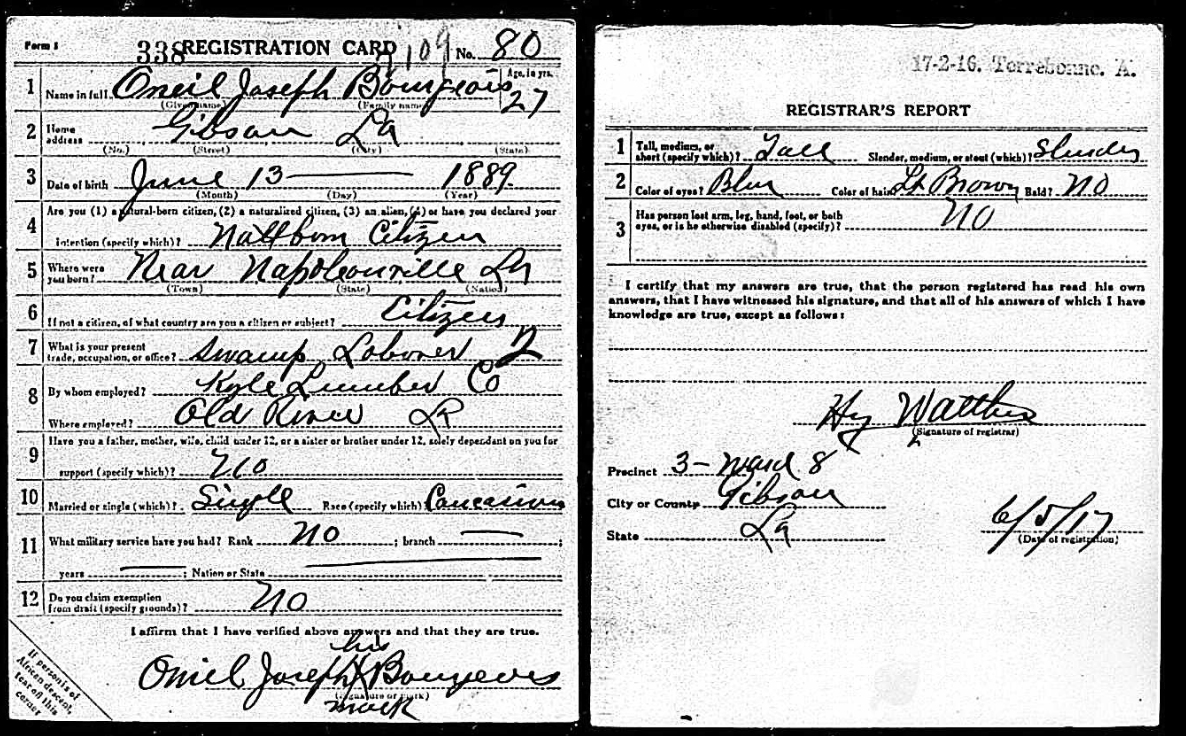 Form 1 338 REGISTRATION CARD 109 No. 80
1 Name in full Oneil Joseph Bourgeois Age, in yrs. 27
(Given name) (Family name)
2 Home address Gibson La
(No.) (Street) (City) (State)
3 Date of birth June 13 — 1889
(Month) (Day) (Year)
4 Are you (1) a natural-born citizen, (2) a naturalized citizen, (3) an alien, (4) or have you declared your
intention (specify which)? Natl born Citizen
5 Where were you born? Near Napoleonville La
(Town) (State) (Nation)
6 If not a citizen, of what country are you a citizen or subject? Citizen
7 What is your present trade, occupation, or office? Swamp Laborer 2
8 By whom employed? Kyle Lumber Co
Where employed? Old River La
9 Have you a father, mother, wife, child under 12, or a sister or brother under 12, solely dependant on you for
support (specify which)? No
10 Married or single (which)? Single Race (specify which)? Caucasian
11 What military service have you had? Rank No ; branch — ;
years — ; Nation or State —
12 Do you claim exemption from draft (specify grounds)? No
I affirm that I have verified above answers and that they are true.
his
Oniel Joseph X Bourgeves
(Signature or mark)
mark
If person is of African descent, tear off this corner
17-2-16. Terrebonne. A.
REGISTRAR'S REPORT
1 Tall, medium, or short (specify which)? Tall Slender, medium, or stout (which)? Slender
2 Color of eyes? Blue Color of hair? Lt Brown Bald? No
3 Has person lost arm, leg, hand, foot, or both eyes, or is he otherwise disabled (specify)? No
I certify that my answers are true, that the person registered has read his own
answers, that I have witnessed his signature, and that all of his answers of which I have
knowledge are true, except as follows:
Hy
(Signature of registrar)
Precinct 3 - Ward 8
City or County Gibson
State La
6/5/17
(Date of registration)